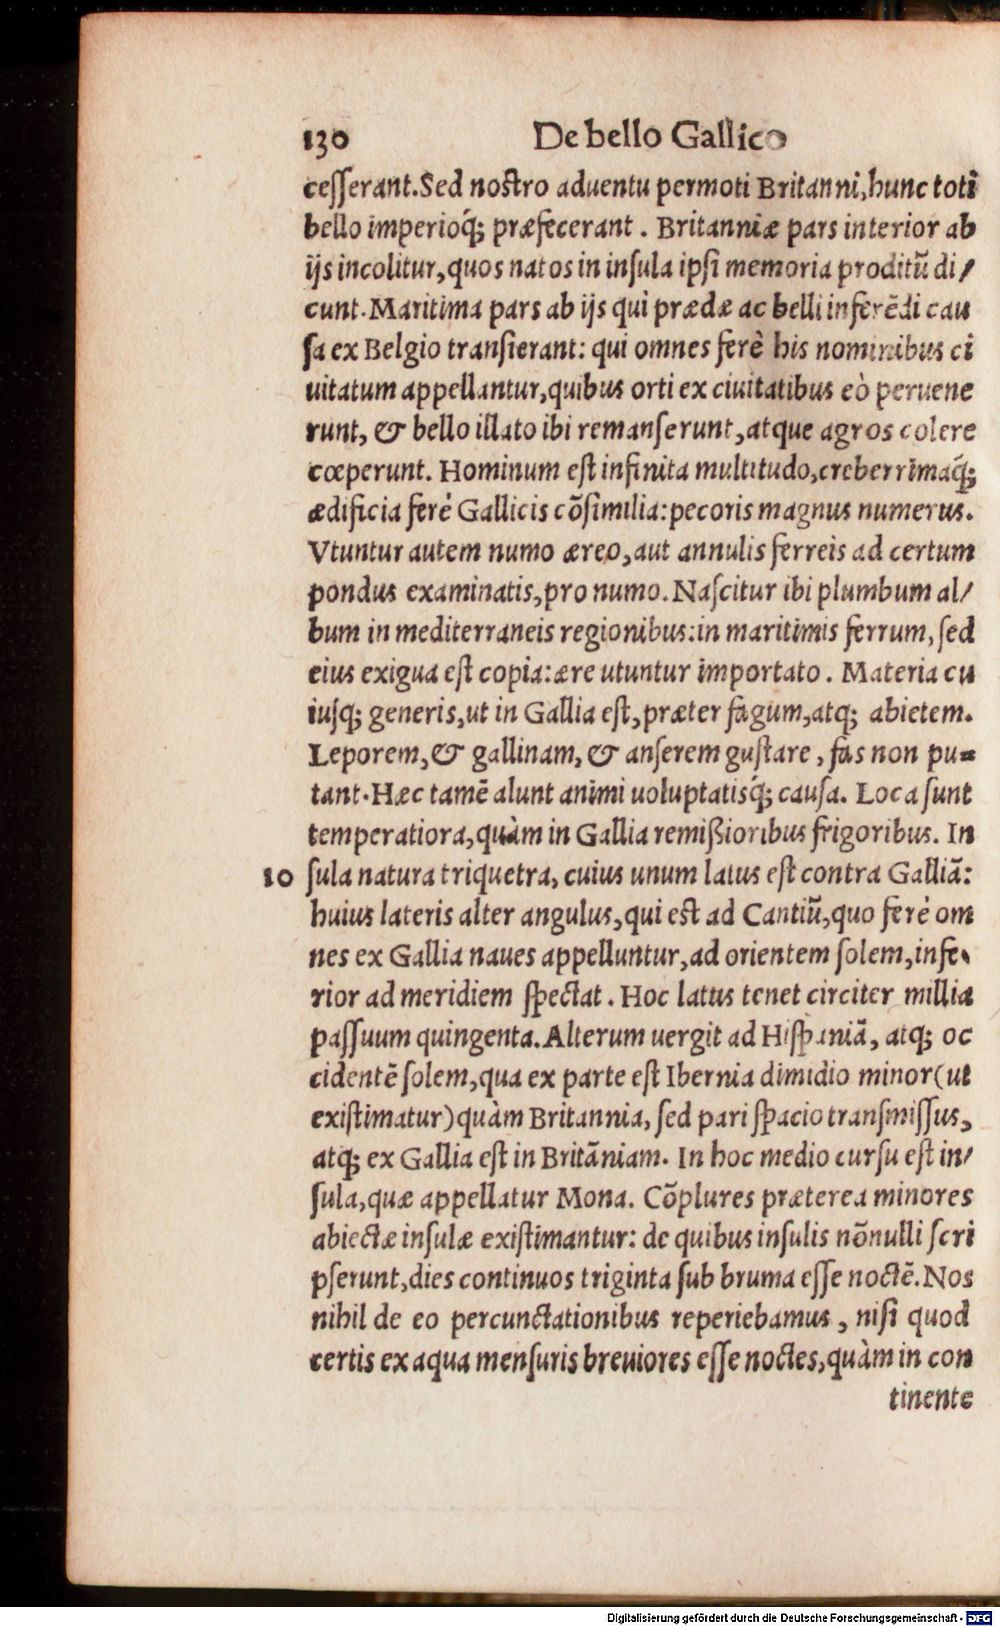 130 De bello Gallico
cesserant. Sed nostro aduentu permoti Britanni, hunc toti
bello imperioq́; præfecerant. Britanniæ pars interior ab
ijs incolitur, quos natos in insula ipsi memoria proditũ di/
cunt. Maritima pars ab ijs qui prædæ ac belli inferẽdi cau
sa ex Belgio transierant: qui omnes ferè his nominibus ci
uitatum appellantur, quibus orti ex ciuitatibus eò peruene
runt, & bello illato ibi remanserunt, atque agros colere
cœperunt. Hominum est infinita multitudo, creberrimaq́;
ædificia ferè Gallicis cõsimilia: pecoris magnus numerus.
Vtuntur autem numo æreo, aut annulis ferreis ad certum
pondus examinatis, pro numo. Nascitur ibi plumbum al/
bum in mediterraneis regionibus: in maritimis ferrum, sed
eius exigua est copia: ære utuntur importato. Materia cu
iusq; generis, ut in Gallia est, præter fagum, atq; abietem.
Leporem, & gallinam, & anserem gustare, fas non pu=
tant. Hæc tamẽ alunt animi uoluptatisq́; causa. Loca sunt
temperatiora, quàm in Gallia remißioribus frigoribus. In
10 sula natura triquetra, cuius unum latus est contra Galliã:
huius lateris alter angulus, qui est ad Cantiũ, quo ferè om
nes ex Gallia naues appelluntur, ad orientem solem, infe-
rior ad meridiem spectat. Hoc latus tenet circiter millia
passuum quingenta. Alterum uergit ad Hispaniã, atq; oc
cidentẽ solem, qua ex parte est Ibernia dimidio minor (ut
existimatur) quàm Britannia, sed pari spacio transmissus,
atq; ex Gallia est in Britãniam. In hoc medio cursu est in/
sula, quæ appellatur Mona. Cõplures præterea minores
abiectæ insulæ existimantur: de quibus insulis nõnulli scri
pserunt, dies continuos triginta sub bruma esse noctẽ. Nos
nihil de eo percunctationibus reperiebamus, nisi quod
certis ex aqua mensuris breuiores esse noctes, quàm in con
tinente
Digitalisierung gefördert durch die Deutsche Forschungsgemeinschaft - DFG